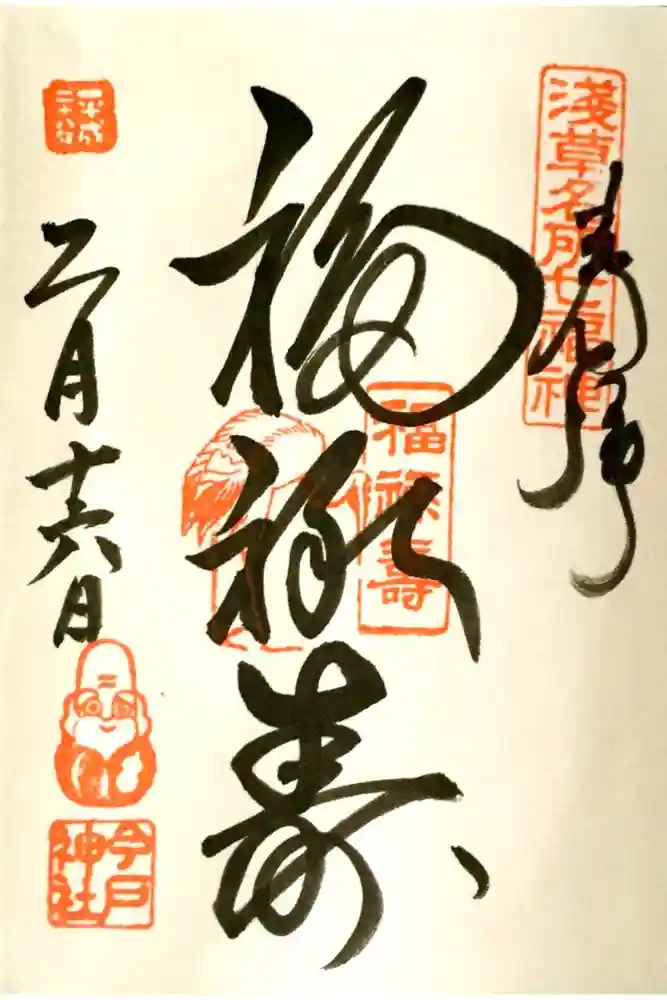 淺草名所七福神
奉拝
福禄壽
福禄寿
平成
二月十六日
今戸
神社